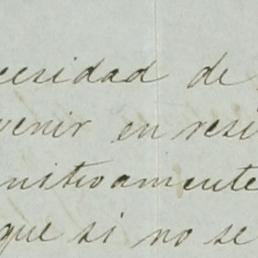 cesidad de
venir en resi
nitivamente
que si no se